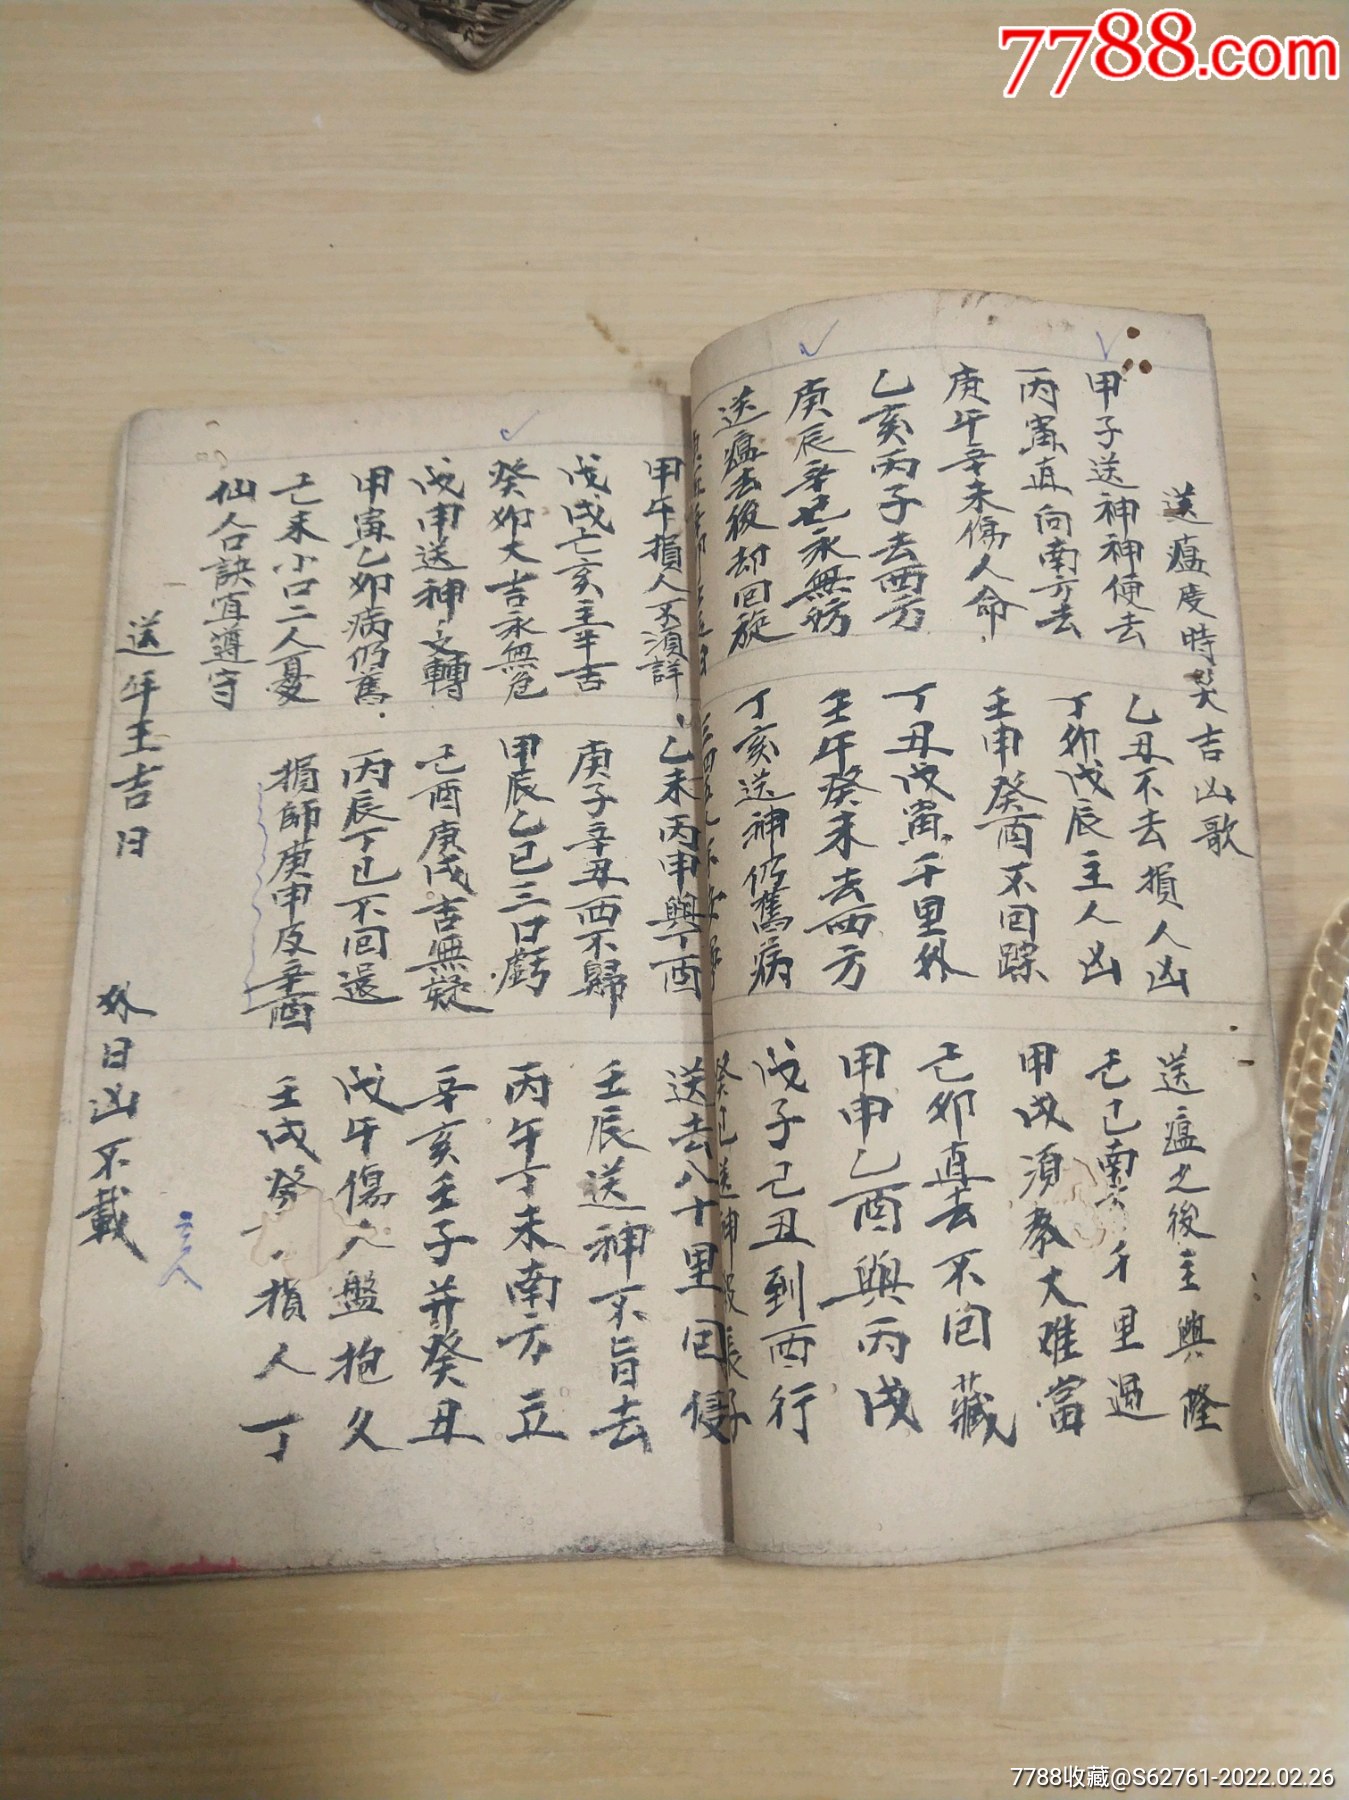 7788.com
送瘟度時焚吉凶歌
甲子送神神便去
乙丑不去損人凶
送瘟之後主興隆
丙寅直向南方去
丁卯戊辰主人凶
己巳南方千里過
庚午辛未傷人命
壬申癸酉不回踪
甲戌須教大难當
乙亥丙子去西方
丁丑戊寅千里外
己卯直去不回藏
庚辰辛巳永無妨
壬午癸未去西方
甲申乙酉與丙戌
送瘟去後却回旋
丁亥送神仍舊病
戊子己丑到西行
癸巳送神
甲午損人不須詳
乙未丙申與丁酉
送去八十里回
戊戌亡亥主半吉
庚子辛丑西不歸
壬辰送神不旨去
癸卯大吉永無危
甲辰乙巳三口虧
丙午丁未南方立
戊申送神又轉
己酉庚戌吉無疑
辛亥壬子并癸丑
甲寅乙卯病仍舊
丙辰丁巳不回還
戊午傷人盤抱久
己未小口二人憂
損師庚申及辛酉
壬戌癸 損人丁
仙合訣宜遵守
送年王吉日 外日凶不載
7788收藏@S62761-2022.02.26